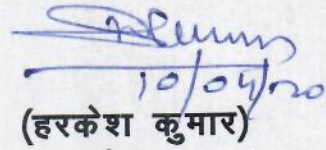 10/04/20
(हरकेश कुमार)